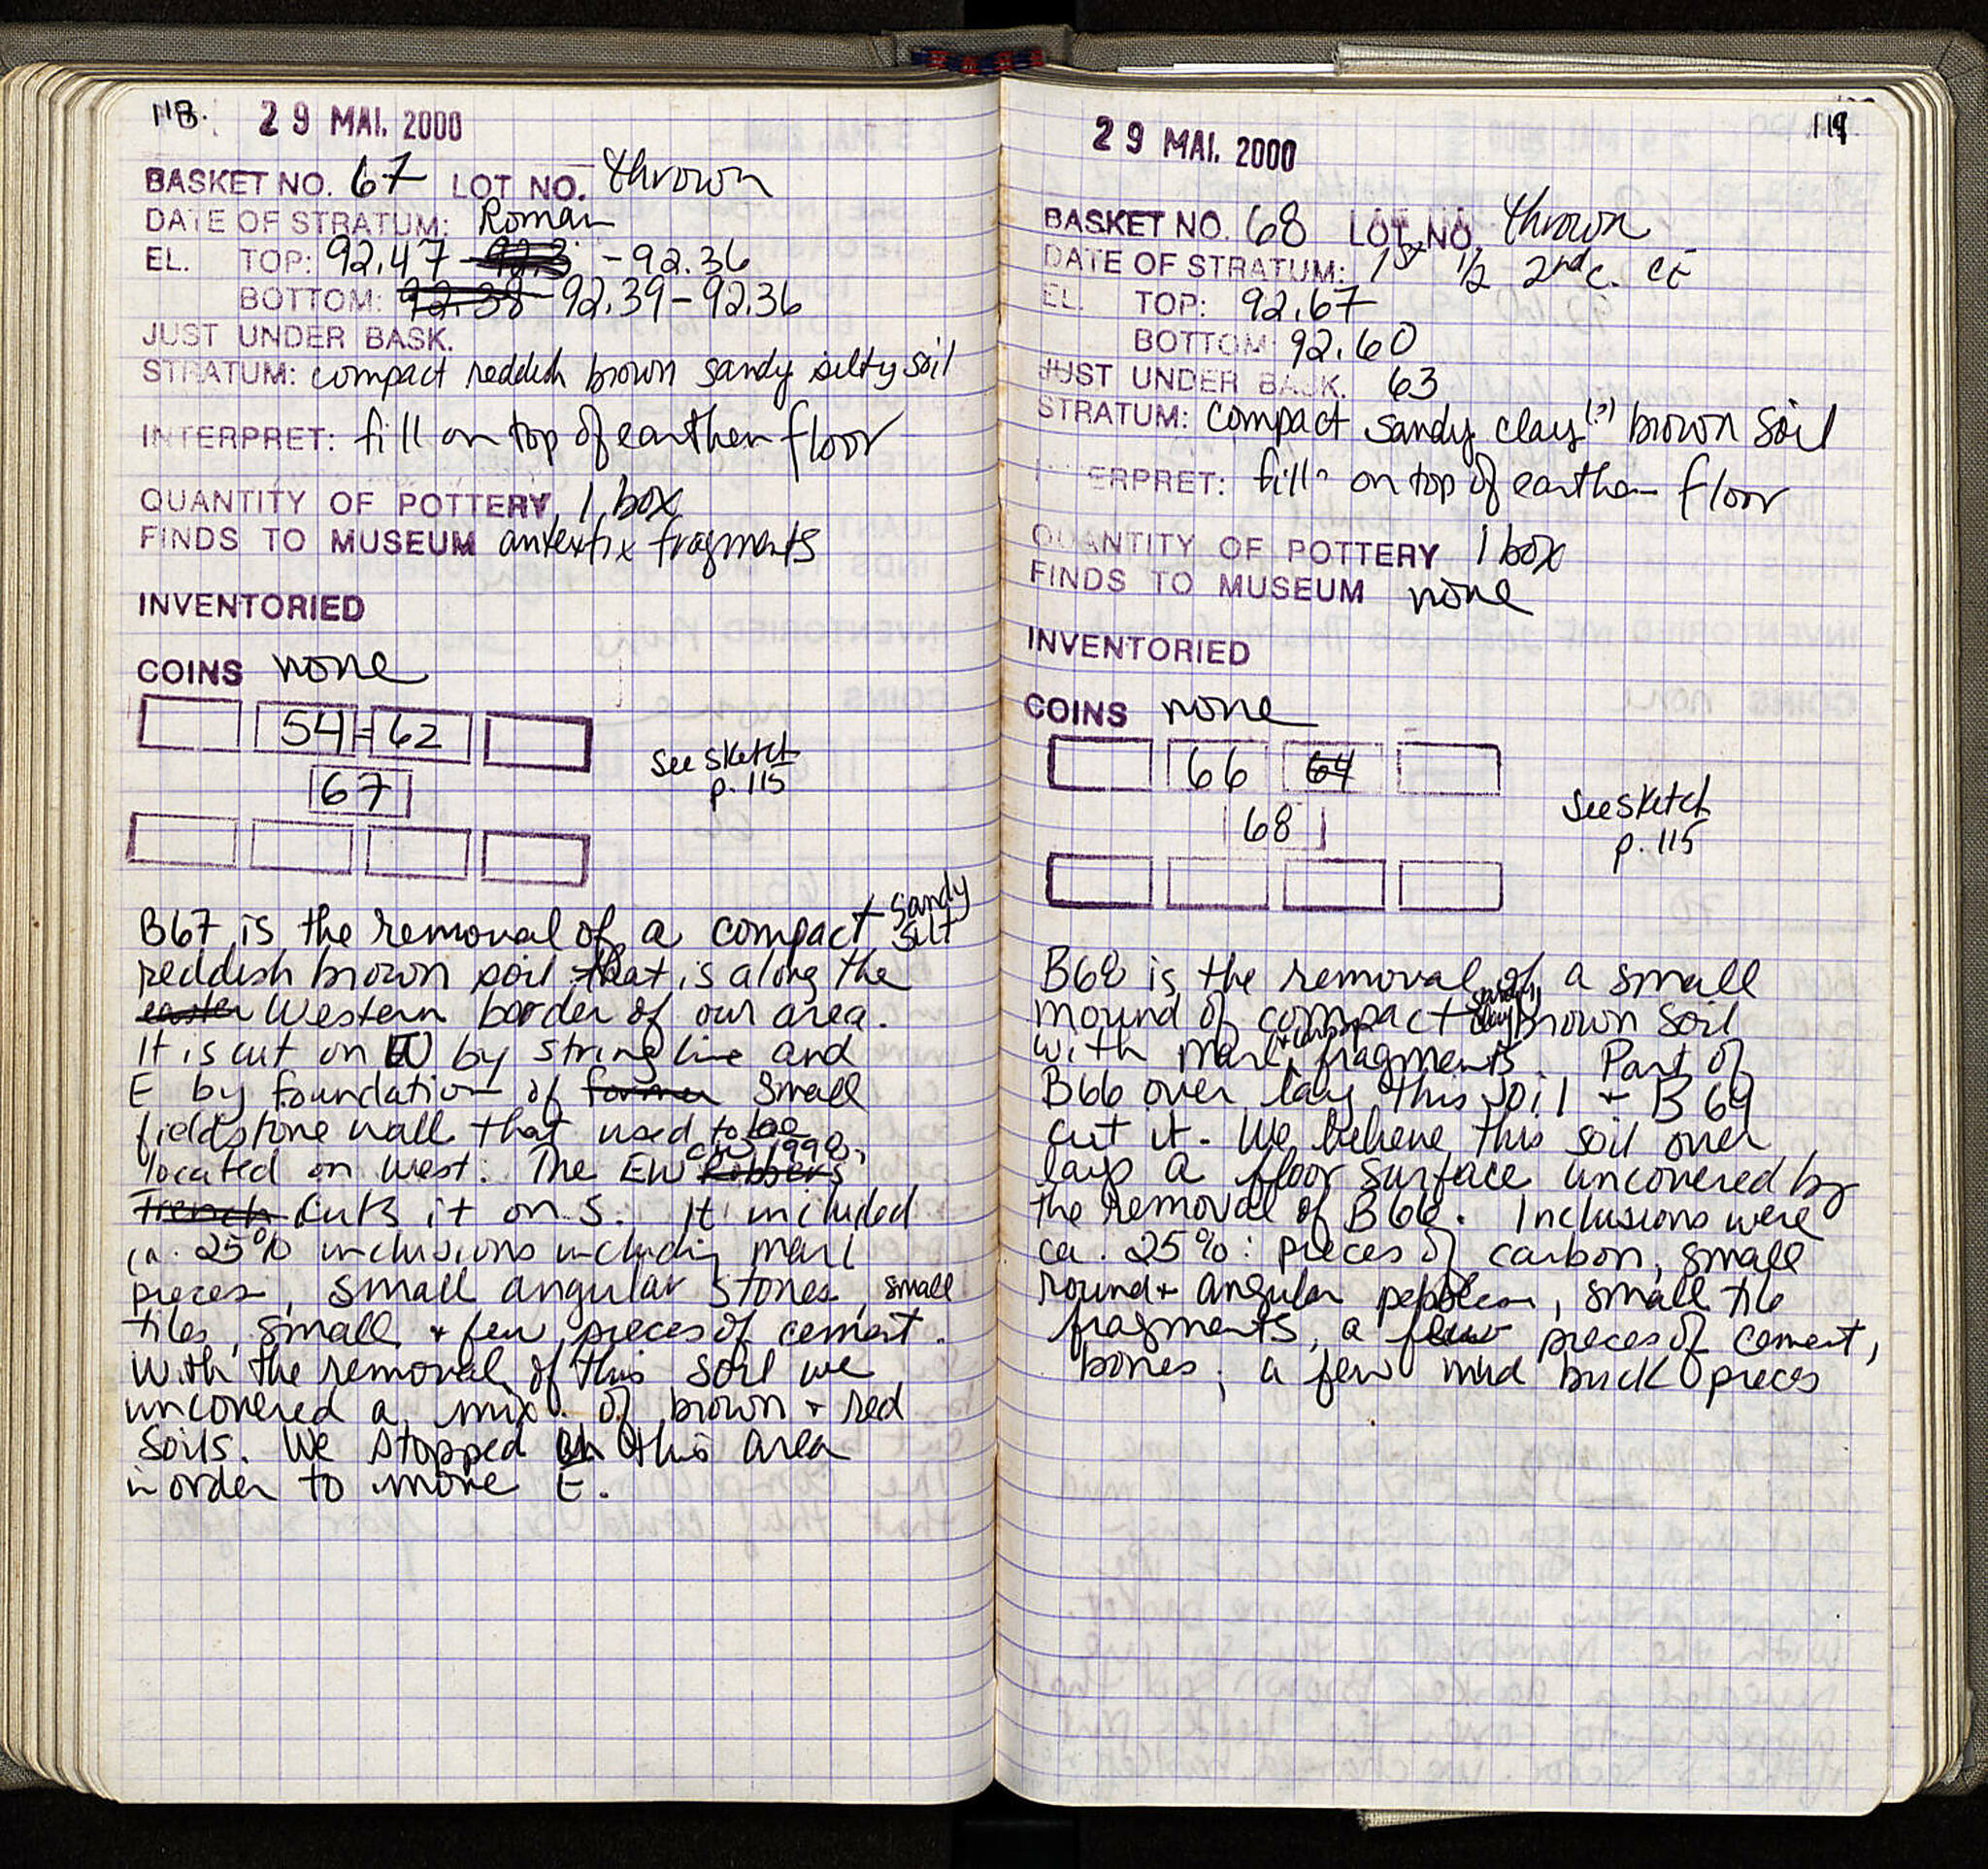 118.
29 MAI. 2000
BASKET NO. 67 LOT NO. thrown
DATE OF STRATUM: Roman
EL. TOP: 92.47 - 92.36
BOTTOM: 92.38 92.39 - 92.36
JUST UNDER BASK.
STRATUM: compact reddish brown sandy silty soil
INTERPRET: fill on top of earthen floor
QUANTITY OF POTTERY 1 box
FINDS TO MUSEUM antefix fragments
INVENTORIED
COINS none
54 = 62
67
See sketch
p. 115
B67 is the removal of a compact sandy silt
reddish brown soil that is along the
easter Western border of our area.
It is cut on W by string line and
E by foundation of former small
fieldstone wall that used to be
located on west. The EW Robbers
Trench cuts it on S. It included
ca. 25% inclusions including marl
pieces, small angular stones, small
tiles, small & few pieces of cement.
With the removal of this soil we
uncovered a mix of brown & red
soils. We stopped in this area
in order to move E.
119
29 MAI. 2000
BASKET NO. 68 LOT NO. thrown
DATE OF STRATUM: 1st 1/2 2nd c. CE
EL. TOP: 92.67
BOTTOM: 92.60
JUST UNDER BASK. 63
STRATUM: compact sandy clay (?) brown soil
INTERPRET: fill on top of earthen floor
QUANTITY OF POTTERY 1 box
FINDS TO MUSEUM none
INVENTORIED
COINS none
66 64
68
See sketch
p. 115
B68 is the removal of a small
mound of compact sandy clay brown soil
with marl & carbon fragments. Part of
B66 over lay this soil & B 64
cut it. We believe this soil over
lays a floor surface uncovered by
the removal of B66. Inclusions were
ca. 25%: pieces of carbon, small
round + angular pebbles, small tile
fragments, a few pieces of cement,
bones, a few mud brick pieces